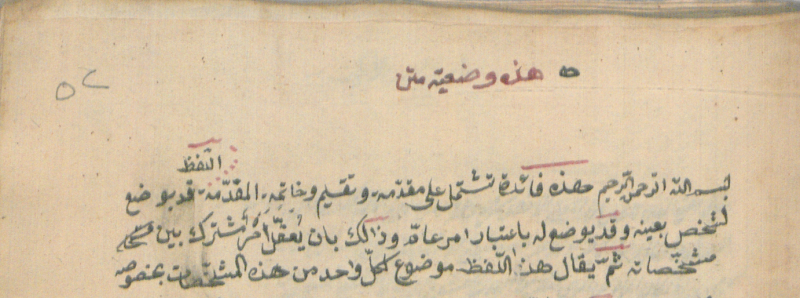 هذه وضعيه متن
٥٢
اللفظ
بسم الله الرحمن الرحيم هذه فائدة تشتمل على مقدمه وتقسيم وخاتمه المقدّمة قد يوضع
لشخص بعينه وقد يوضع له باعتبار امر عام وذالك بان يُعقّل اَمْرٌ مُشترك بين
مشخّصاته ثمّ يقال هذ اللّفظ موضوع لكلّ واحد من هذه المشخّصات بخصوصه